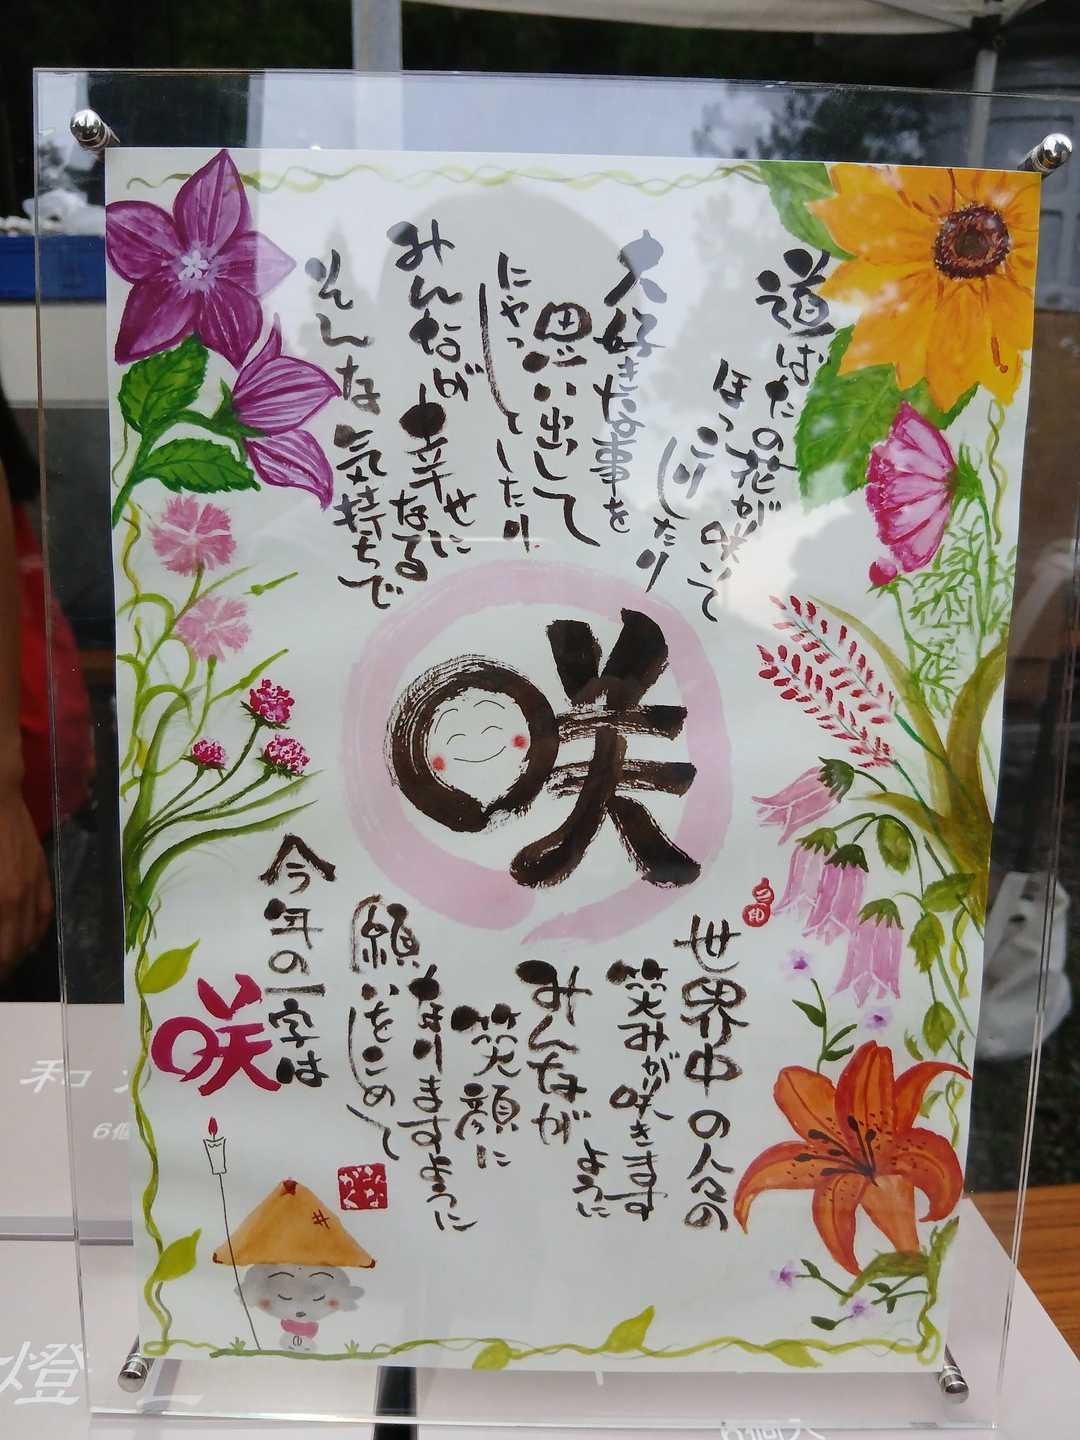 道ばたの花が咲いて
ほっこりしたり
大好きな事を
思い出して
にやっとしたり
みんなが幸せになる
そんな気持ちで
咲
世界中の人々の
笑みが咲きますように
みんなが
笑顔に
なりますように
願いをこめて
今年の一字は
咲
和
6個
燈